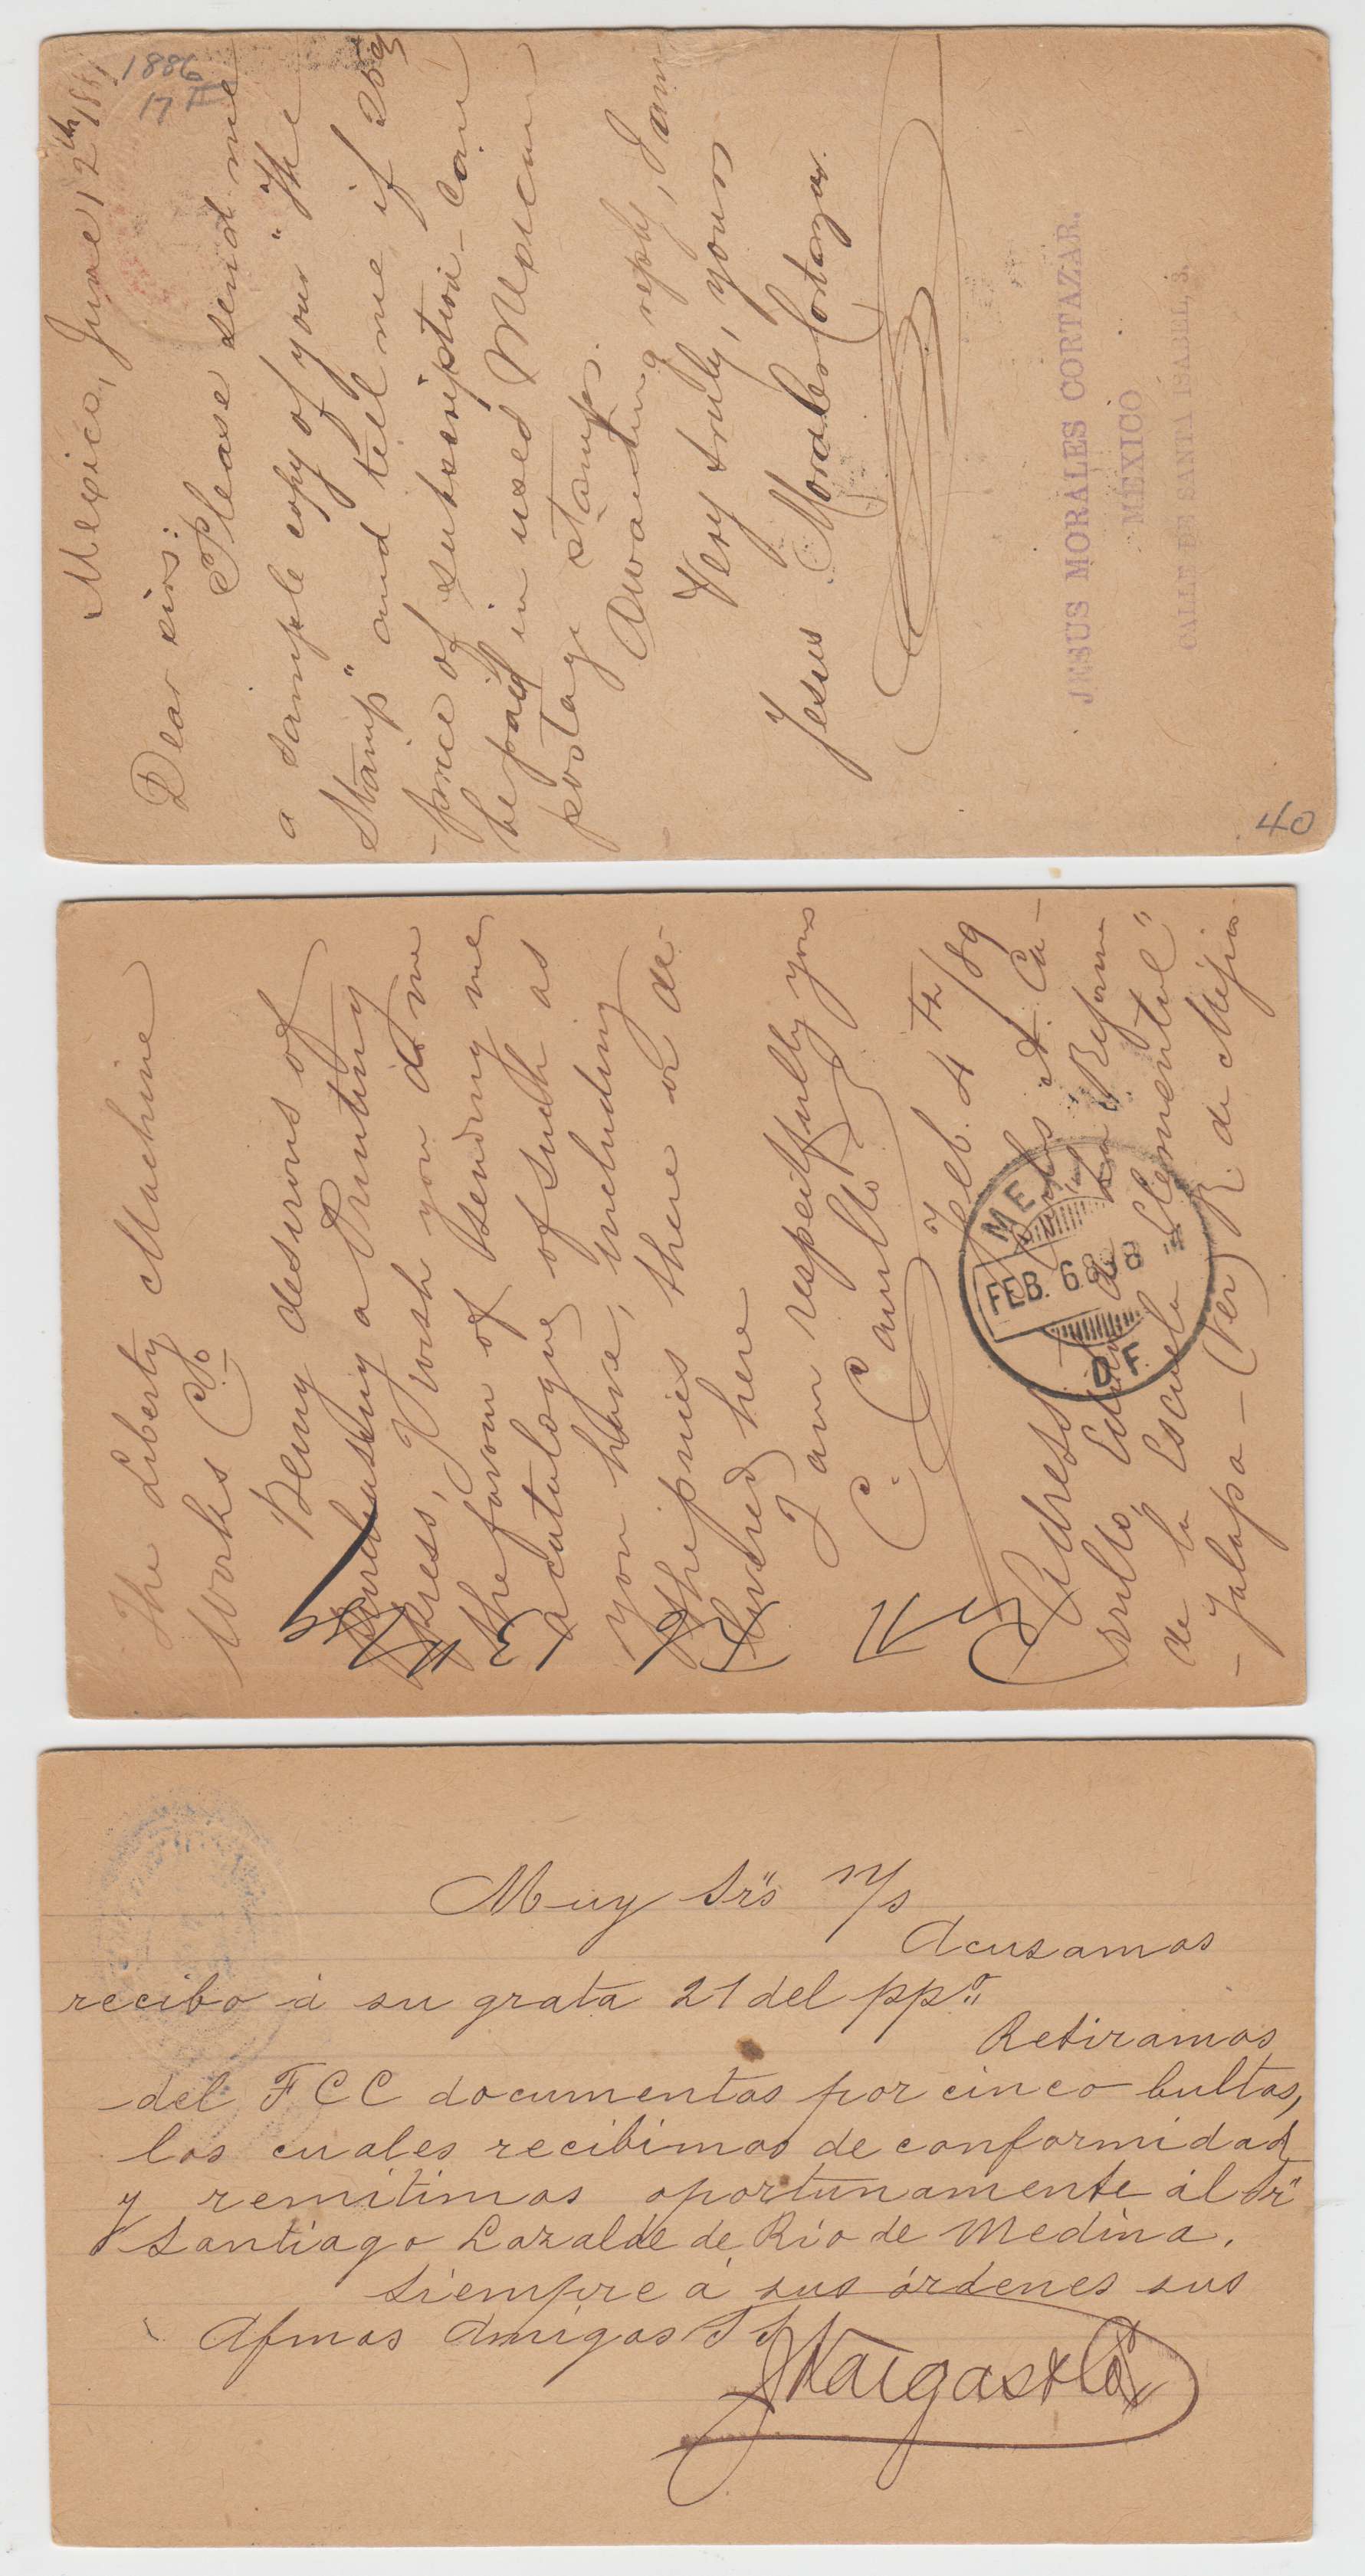 1886
17 II
Mexico, June, 12th 188
Dear sirs:
Please send me
a sample copy of your "The
Stamp" and tell me if 20¢
price of subscription - can
be paid in used Mexican
postage stamps.
Awaiting reply, I am
Very truly, yours
Jesus Morales Cortazar.
JESUS MORALES CORTAZAR.
MEXICO
CALLE DE SANTA ISABEL, 3.
40
The Liberty Machine
Works Co.
Being desirous of
purchasing a Printing
press, I wish you do me
the favour of sending me
a catalogue of such as
you have, including
the prices there or de-
livered here
I am respectfully yours
C. Carrillo
Feb. 4th/89
Adress Carlos A. Ca-
rrillo, Editor de "La Reforma
de la Escuela Elemental"
- Jalapa - (Ver) R. de Méjico.
MEX
FEB. 6 88 8
D F.
Muy Srs n/s
Acusamos
recibo á su grata 21 del ppo.
Retiramos
del F C C documentos por cinco bultos,
los cuales recibimos de conformidad
y remitimos oportunamente ál Sr
Santiago Lazalde de Rio de Medina.
Siempre á sus órdenes sus
Afmos Amigos S S